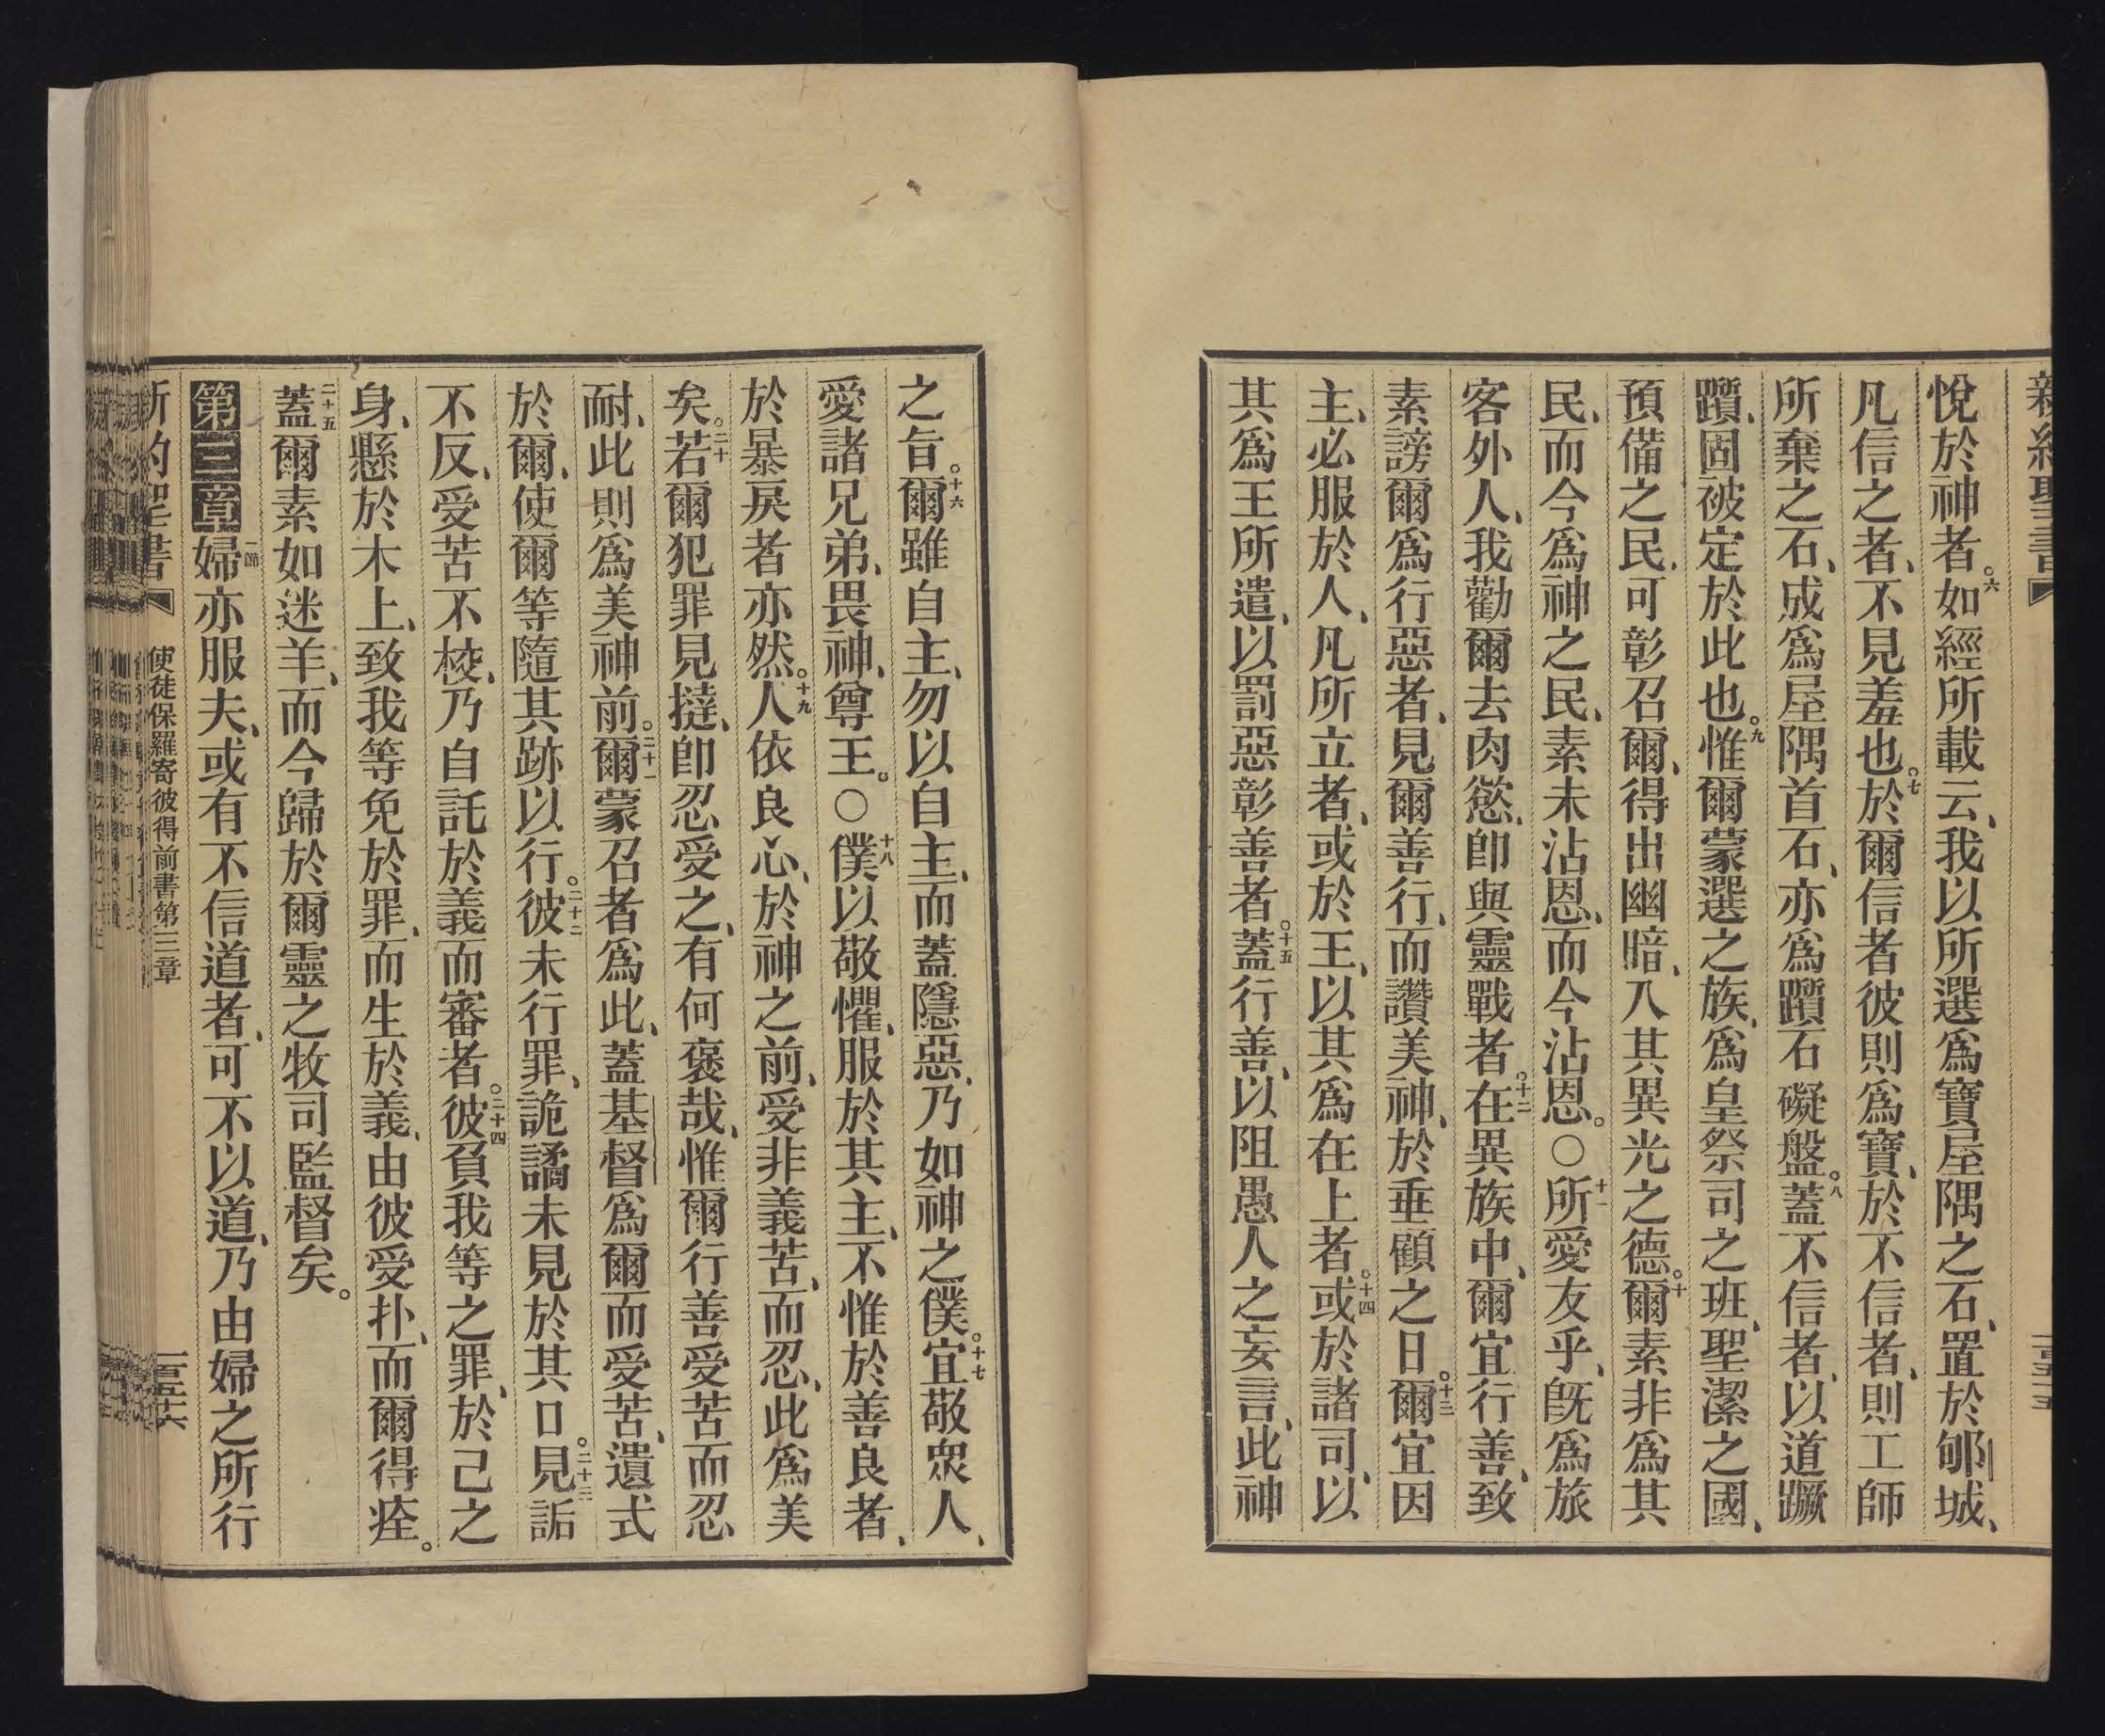 新約聖書
悅於神者。六如經所載云、我以所選爲寶屋隅之石、置於郇城、
凡信之者、不見羞也。七於爾信者彼則爲寶、於不信者、則工師
所棄之石、成爲屋隅首石、亦爲躓石礙盤。八蓋不信者、以道蹶
躓、固被定於此也。九惟爾蒙選之族、爲皇祭司之班、聖潔之國、
預備之民、可彰召爾、得出幽暗、入其異光之德。十爾素非爲其
民、而今爲神之民、素未沾恩、而今沾恩。○十一所愛友乎、旣爲旅
客外人、我勸爾去肉慾、卽與靈戰者。十二在異族中、爾宜行善、致
素謗爾爲行惡者、見爾善行、而讚美神、於垂顧之日。十三爾宜因
主、必服於人、凡所立者、或於王、以其爲在上者。十四或於諸司、以
其爲王所遣、以罰惡彰善者。十五蓋行善、以阻愚人之妄言、此神
之旨。十六爾雖自主、勿以自主、而蓋隱惡、乃如神之僕。十七宜敬衆人、
愛諸兄弟、畏神、尊王。○十八僕以敬懼、服於其主、不惟於善良者、
於暴戾者亦然。十九人依良心、於神之前、受非義苦、而忍、此爲美
矣。二十若爾犯罪見撻、卽忍受之、有何褒哉、惟爾行善受苦而忍
耐、此則爲美神前。二十一爾蒙召者爲此、蓋基督爲爾而受苦、遺式
於爾、使爾等隨其跡以行。二十二彼未行罪、詭譎未見於其口。二十三見詬
不反、受苦不校、乃自託於義而審者。二十四彼負我等之罪、於己之
身、懸於木上、致我等免於罪、而生於義、由彼受扑、而爾得痊。
二十五蓋爾素如迷羊、而今歸於爾靈之牧司監督矣。
第三章一節婦亦服夫、或有不信道者、可不以道、乃由婦之所行
新約聖書 使徒保羅寄彼得前書第三章 一百五十六